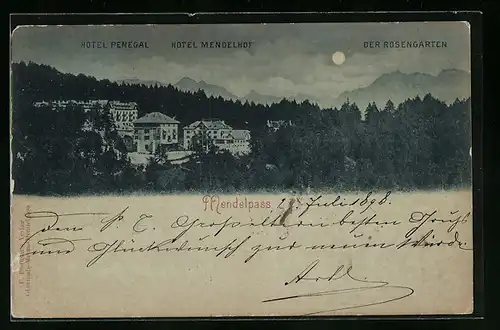 HOTEL PENEGAL HOTEL MENDELHOF DER ROSENGARTEN
Mendelpass Juli 1898.
Den P. T. Großeltern besten Gruß
und Glückwunsch zur neuen Würde.